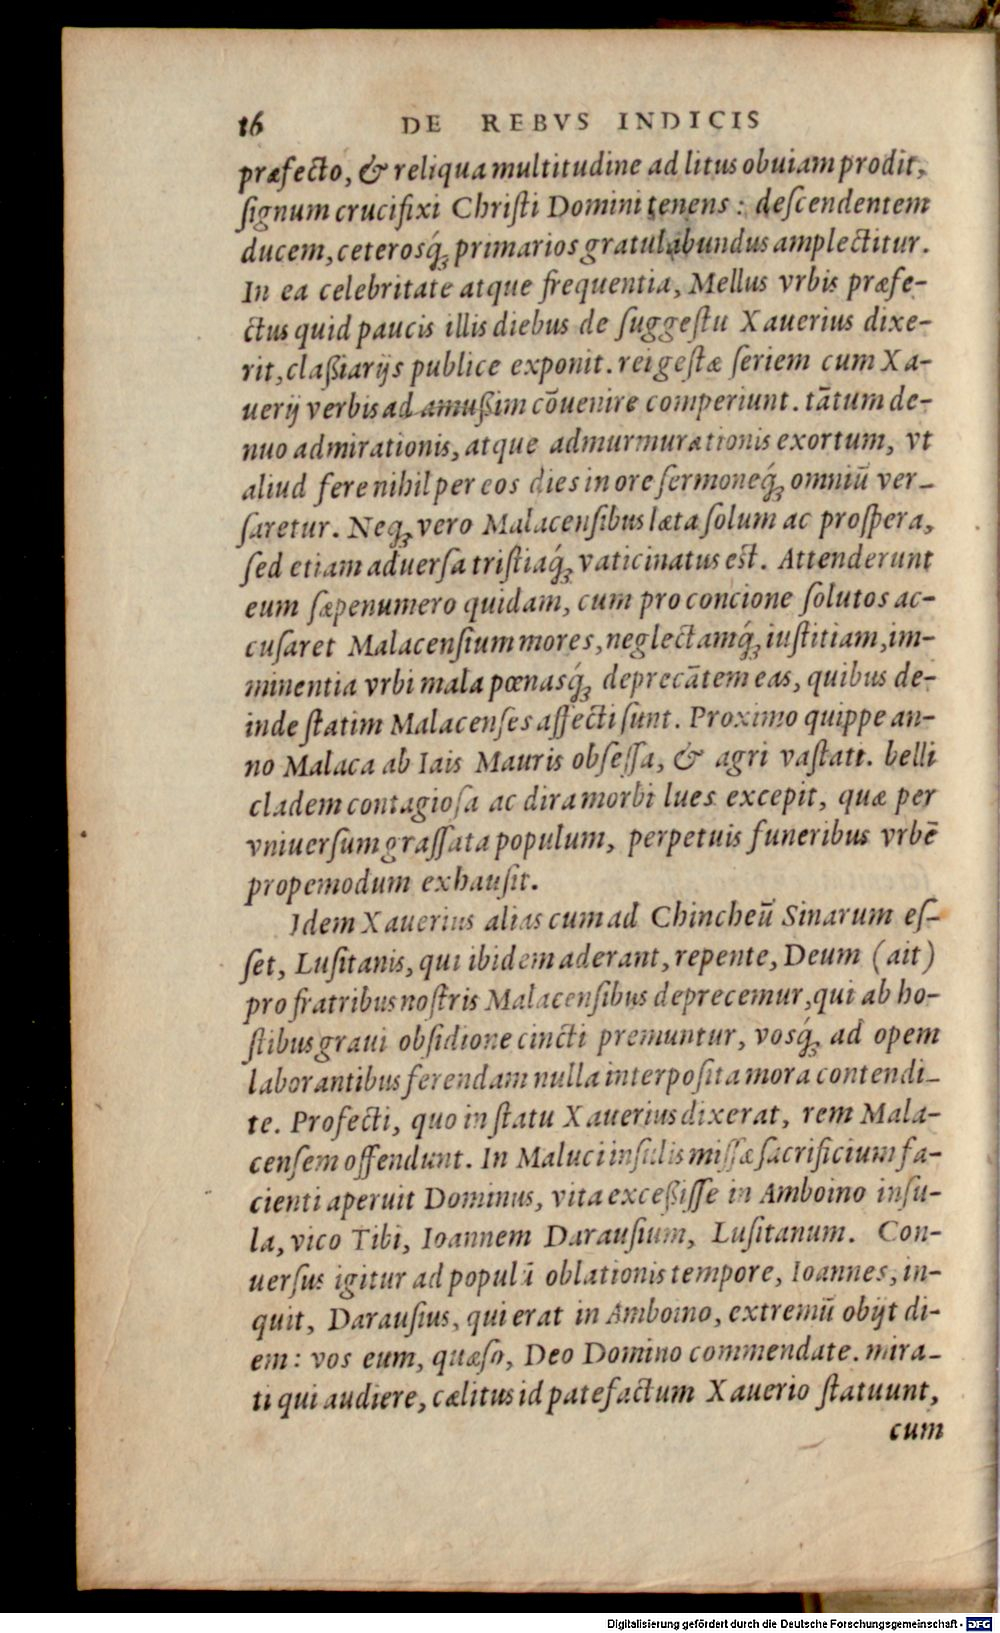 16 DE REBVS INDICIS
præfecto, & reliqua multitudine ad litus obuiam prodit,
ſignum crucifixi Chriſti Domini tenens: deſcendentem
ducem, ceterosq́ꝫ primarios gratulabundus amplectitur.
In ea celebritate atque frequentia, Mellus vrbis præfe-
ctus quid paucis illis diebus de ſuggeſtu Xauerius dixe-
rit, claßiarijs publice exponit. rei geſtæ ſeriem cum Xa-
uerij verbis ad amußim cōuenire comperiunt. tātum de-
nuo admirationis, atque admurmurationis exortum, vt
aliud fere nihil per eos dies in ore ſermoneq́ꝫ omniū ver-
ſaretur. Neqꝫ vero Malacenſibus læta ſolum ac proſpera,
ſed etiam aduerſa triſtiaq́ꝫ vaticinatus eſt. Attenderunt
eum ſæpenumero quidam, cum pro concione ſolutos ac-
cuſaret Malacenſium mores, neglectamq́ꝫ iuſtitiam, im-
minentia vrbi mala pœnasq́ꝫ deprecātem eas, quibus de-
inde ſtatim Malacenſes affecti ſunt. Proximo quippe an-
no Malaca ab Iais Mauris obſeſſa, & agri vaſtati. belli
cladem contagioſa ac dira morbi lues excepit, quæ per
vniuerſum graſſata populum, perpetuis funeribus vrbē
propemodum exhauſit.
Idem Xauerius alias cum ad Chincheū Sinarum eſ-
ſet, Luſitanis, qui ibidem aderant, repente, Deum (ait)
pro fratribus noſtris Malacenſibus deprecemur, qui ab ho-
ſtibus graui obſidione cincti premuntur, vosq́ꝫ ad opem
laborantibus ferendam nulla interpoſita mora contendi-
te. Profecti, quo in ſtatu Xauerius dixerat, rem Mala-
cenſem offendunt. In Maluci inſulis miſſæ ſacrificium fa-
cienti aperuit Dominus, vita exceßiſſe in Amboino inſu-
la, vico Tibi, Ioannem Darauſium, Luſitanum. Con-
uerſus igitur ad populū oblationis tempore, Ioannes, in-
quit, Darauſius, qui erat in Amboino, extremū obijt di-
em: vos eum, quæſo, Deo Domino commendate. mira-
ti qui audiere, cælitus id patefactum Xauerio ſtatuunt,
cum
Digitalisierung gefördert durch die Deutsche Forschungsgemeinschaft - DFG